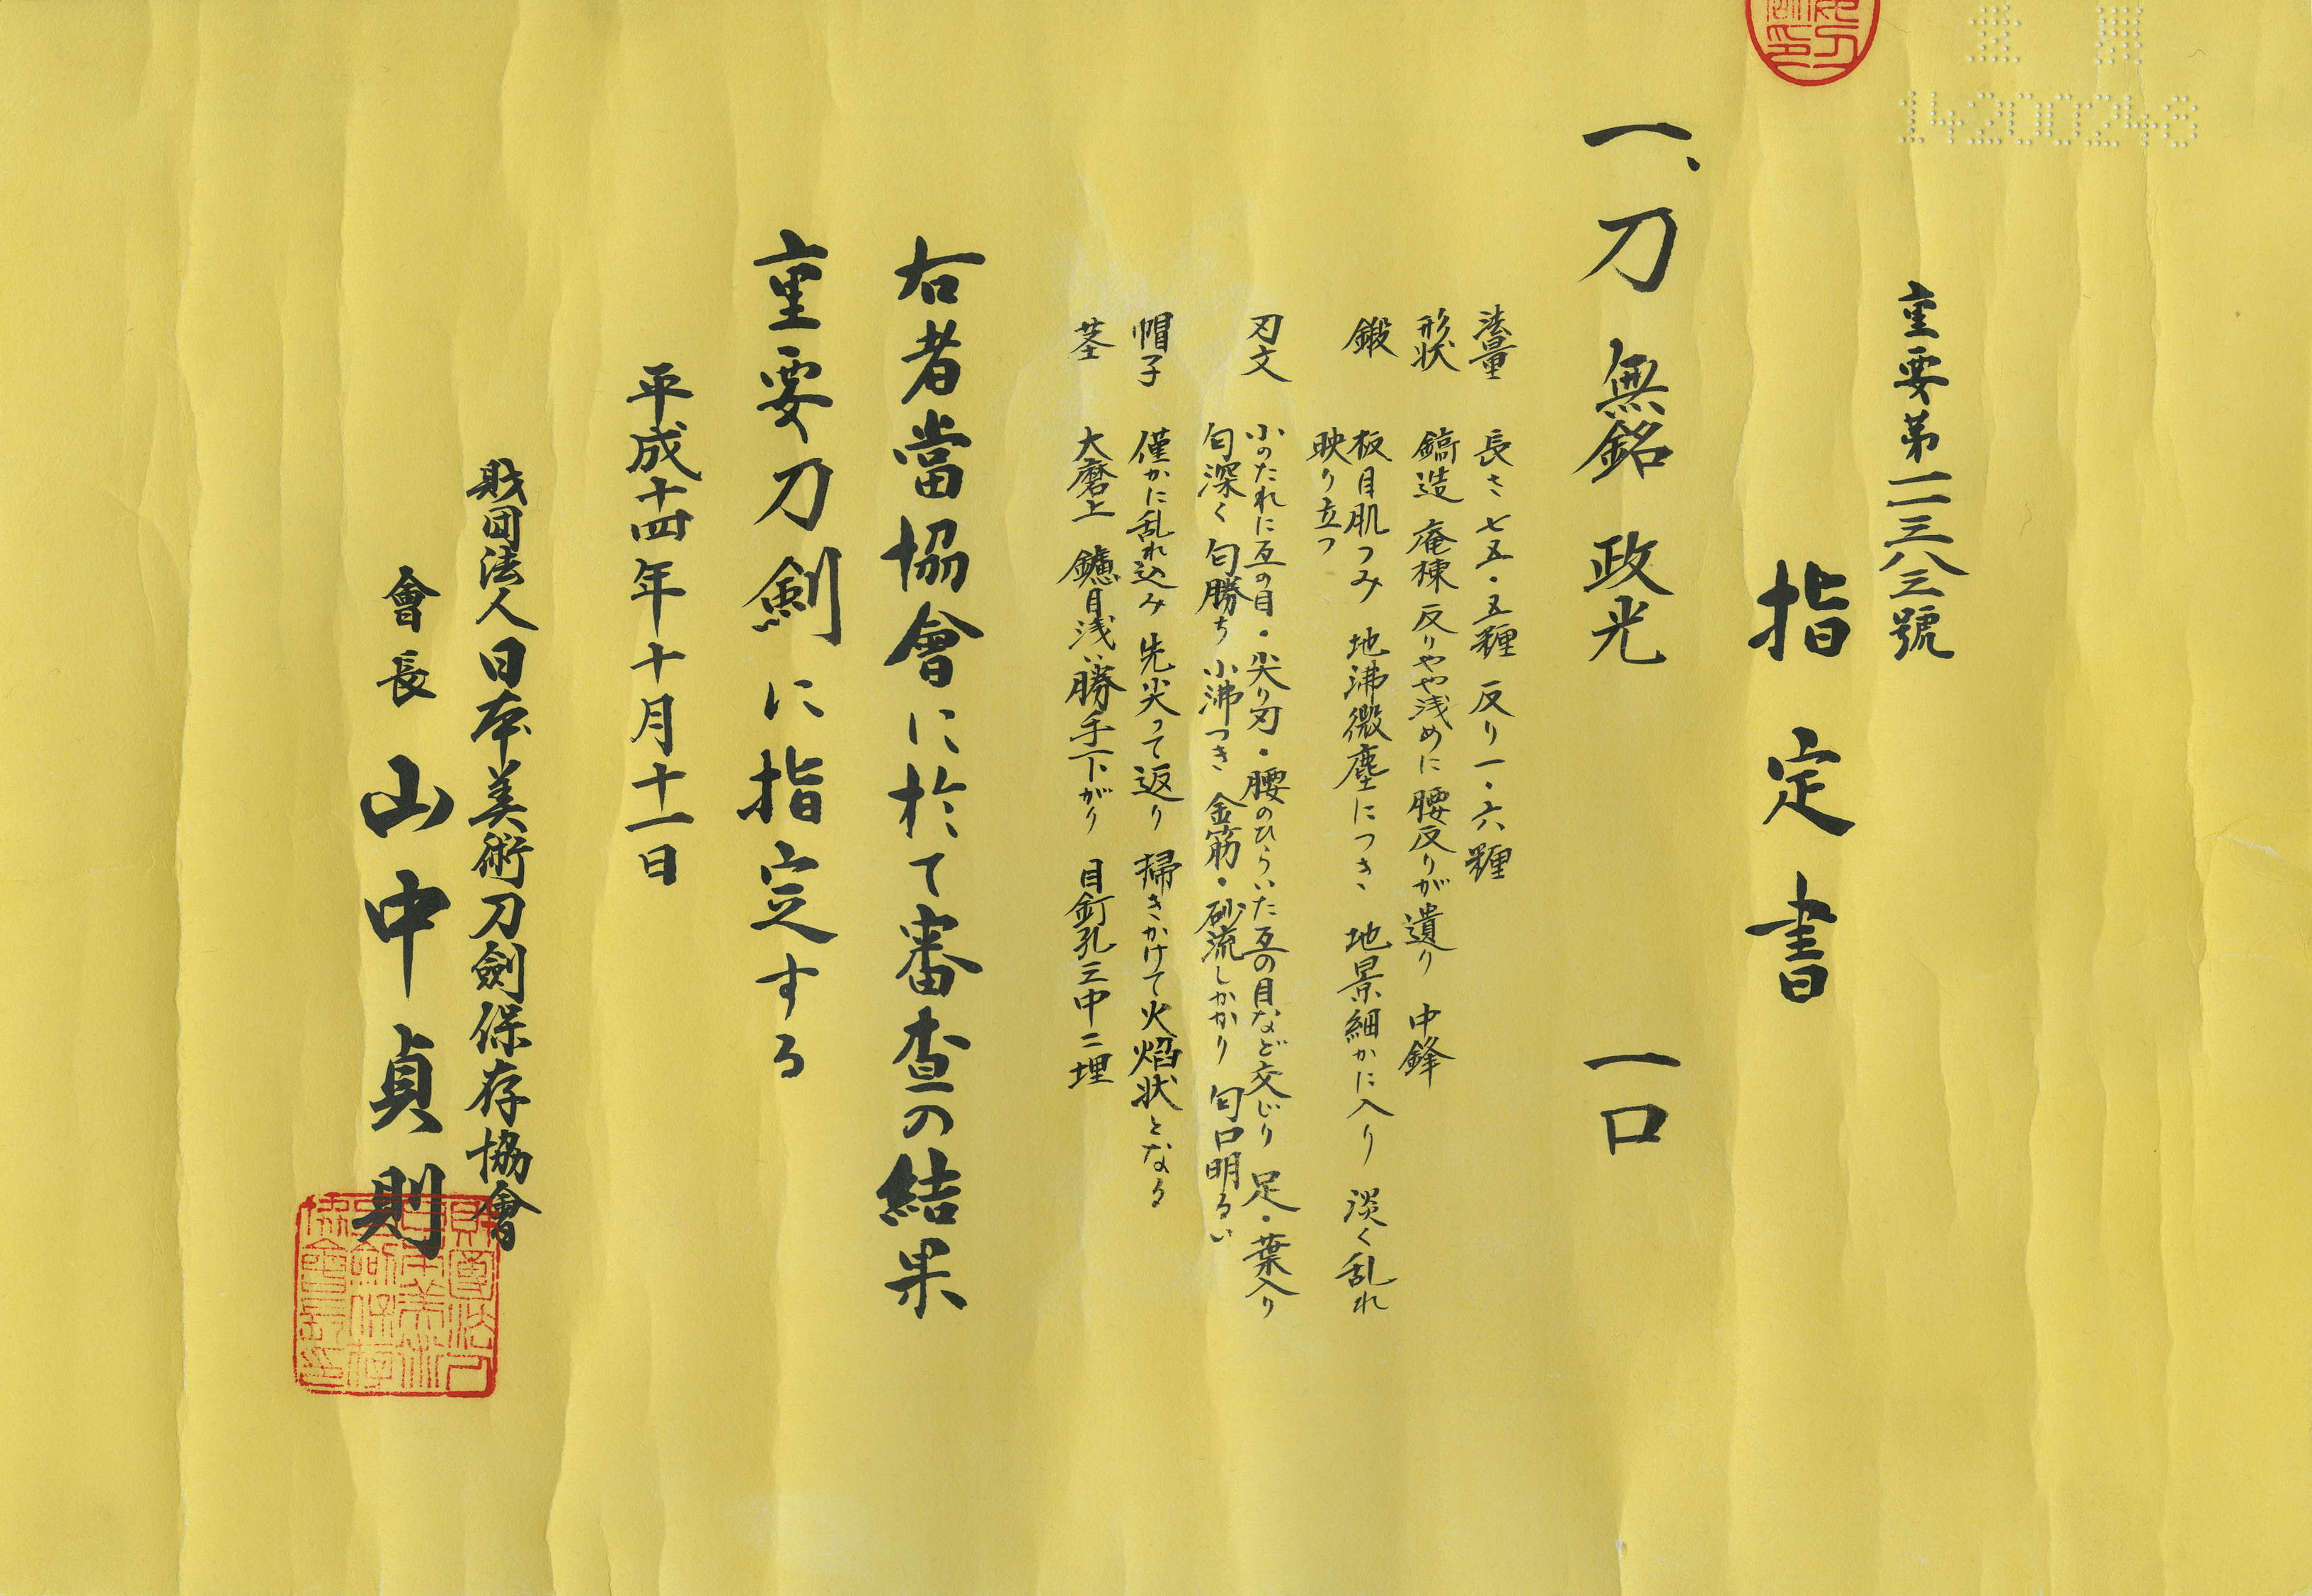 14200248
重要第一一三八三號
指定書
一、刀 無銘 政光 一口
法量 長さ七五・五糎 反り一・六糎
形状 鎬造 庵棟 反りやや浅めに腰反りが遺り 中鋒
鍛 板目肌つみ 地沸微塵につき 地景細かに入り 淡く乱れ
映り立つ
刃文 小のたれに互の目・尖り刃・腰のひらいた互の目など交じり 足・葉入り
匂深く匂勝ち 小沸つき 金筋・砂流しかかり 匂口明るい
帽子 僅かに乱れ込み 先尖って返り 掃きかけて火焔状となる
茎 大磨上 鑢目浅い勝手下がり 目釘孔三中二埋
右者當協會に於て審査の結果
重要刀剣に指定する
平成十四年十月十一日
財団法人日本美術刀劍保存協會
會長 山中貞則